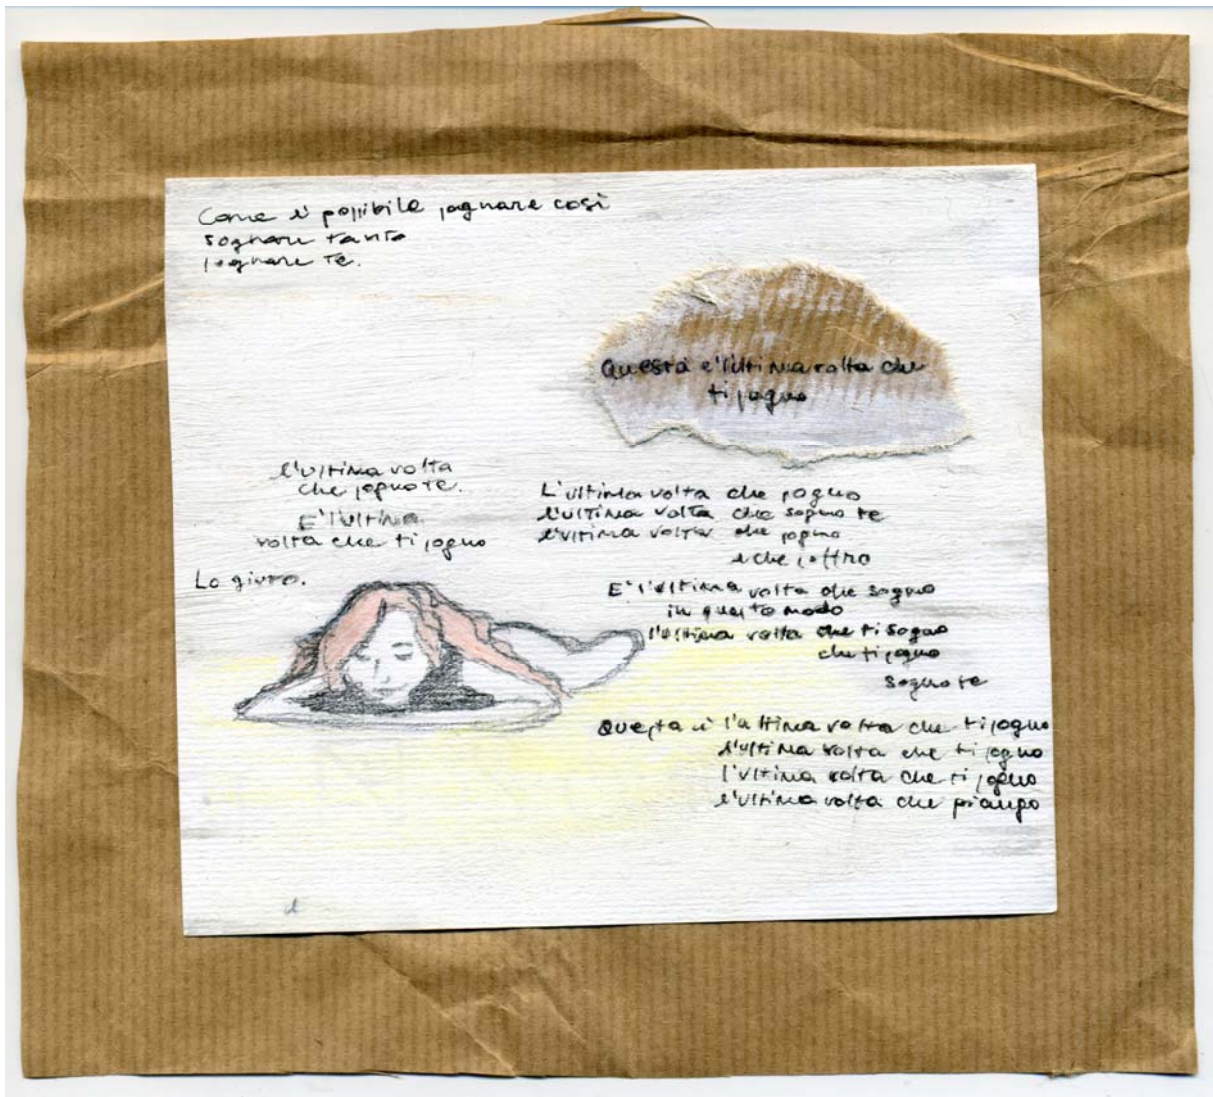 Come è possibile sognare così
sognare tanto
sognare te.
Questa è l'ultima volta che
ti sogno
l'ultima volta
che sogno te.
E' l'ultima
volta che ti sogno
Lo giuro.
L'ultima volta che sogno
l'ultima volta che sogno te
l'ultima volta che sogno
e che soffro
E' l'ultima volta che sogno
in questo modo
l'ultima volta che ti sogno
che ti sogno
sogno te
Questa è l'ultima volta che ti sogno
l'ultima volta che ti sogno
l'ultima volta che ti sogno
l'ultima volta che piango